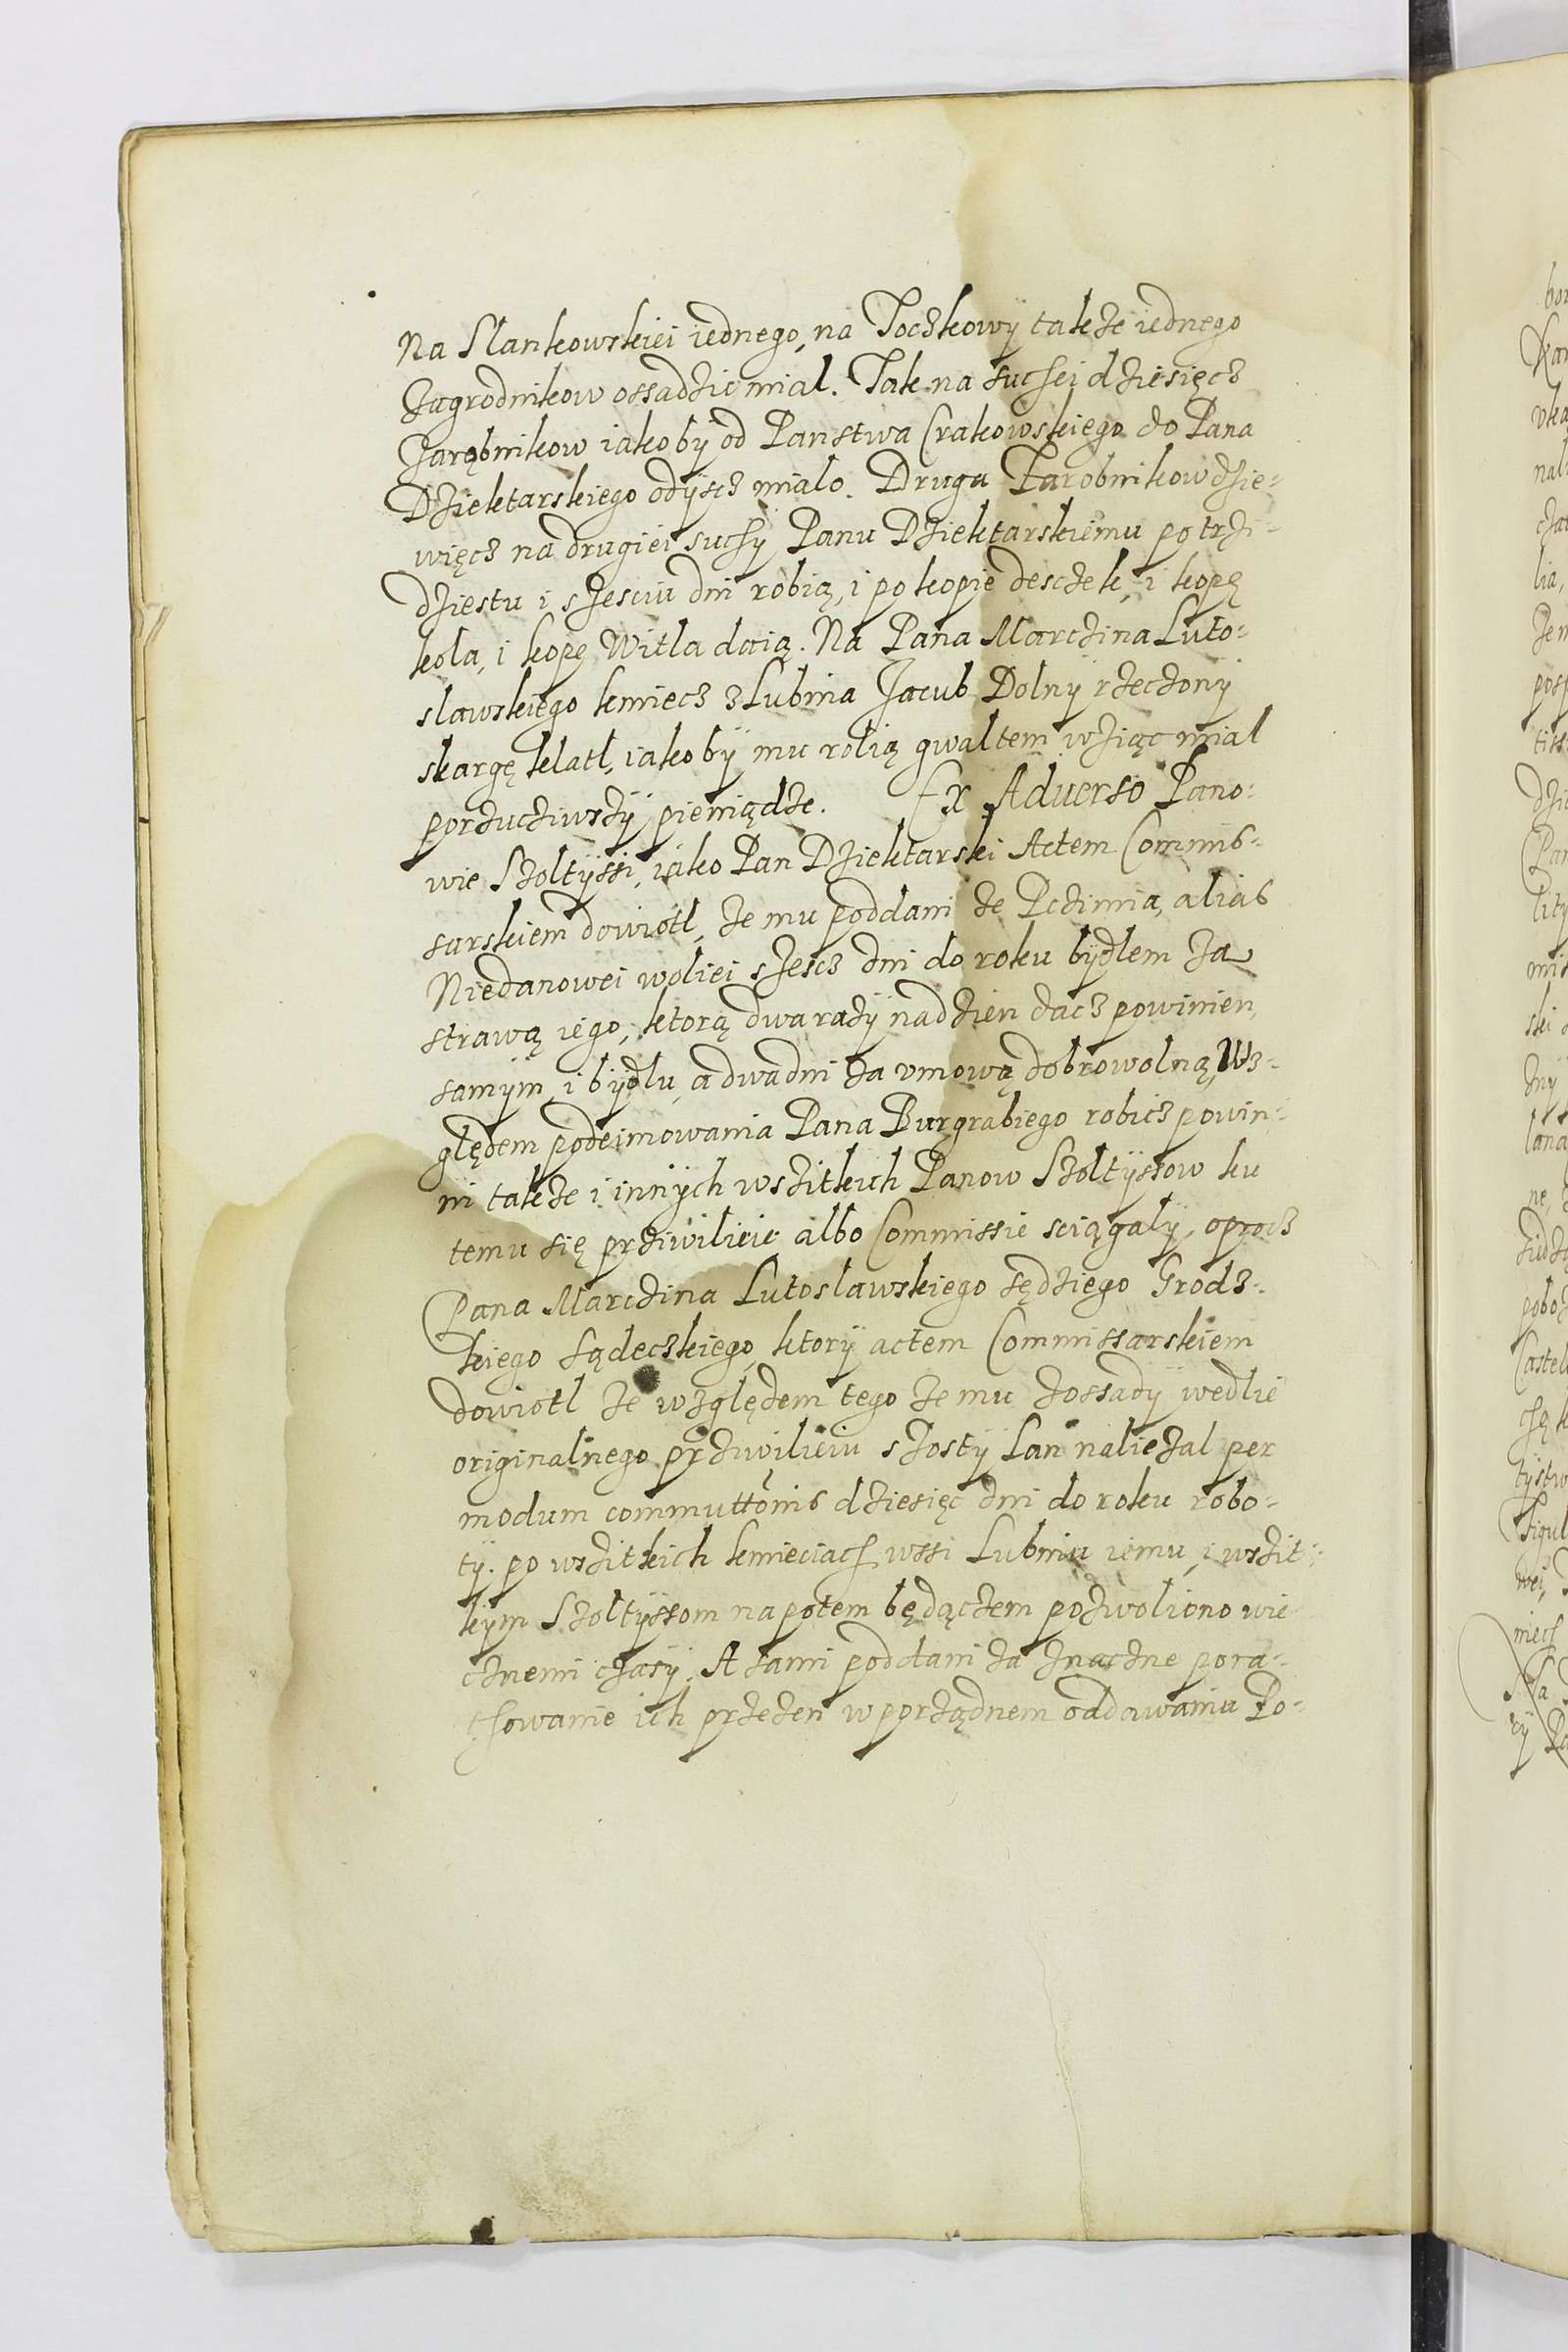 Na Slankowskiei iednego, na Toczkowÿ także iednego
Zagrodnikow ossadzic mial. Tak na suchei dziesięcz
Zarąbnikow iakobÿ od Panstwa Crakowskiego do Pana
Dziektarskiego odÿscz mialo. Druga Zarobnikow dzie-
więcz na drugiei suchÿ Panu Dziektarskiemu po trzi-
dziestu i szesciu dni robią, i po kopie desczek, i kopę
kola, i kopę Witla daią. Na Pana Marczina Luto-
slawskiego kmiecz z Lubnia Jacub Dolnÿ rzeczonÿ
skargę kladl, iakobÿ mu rolią gwaltem wziąc mial
porzucziwszÿ pieniądze. Ex Aduerso Pano-
wie Szoltÿssi, iako Pan Dziektarski Actem Commis-
sarskiem dowiotl, że mu poddani ze Pczimia, alias
Niedanowei woliei szescz dni do roku bÿdlem za
strawą iego, ktorą dwa razÿ na dzien dacz powinien,
samÿm i bÿdlu, a dwa dni za vmową dobrowolną, Wz-
ględem podeimowania Pana Burgrabiego robicz powin-
ni takze i innÿch wszitkich Panow Szoltÿssow ku
temu się prziwilieie albo Commissie sciągalÿ, oprocz
Pana Marczina Lutoslawskiego sędziego Grodz-
kiego Sądeczkiego, ktorÿ actem Commissarskiem
dowiotl że względem tego że mu zossadÿ wedlie
originalnego prziwilieiu szostÿ Lan nalieżal per
modum commuttonis dziesięc dni do roku robo-
tÿ. po wszitkich kmieciach wssi Lubniu iemu, i wszit-
kÿm Szoltÿssom napotem będączem pozwoliono wie-
cznemi czasÿ. A sami poddani za znaczne pora-
chowanie ich przezen w porządnem oddawaniu Po-